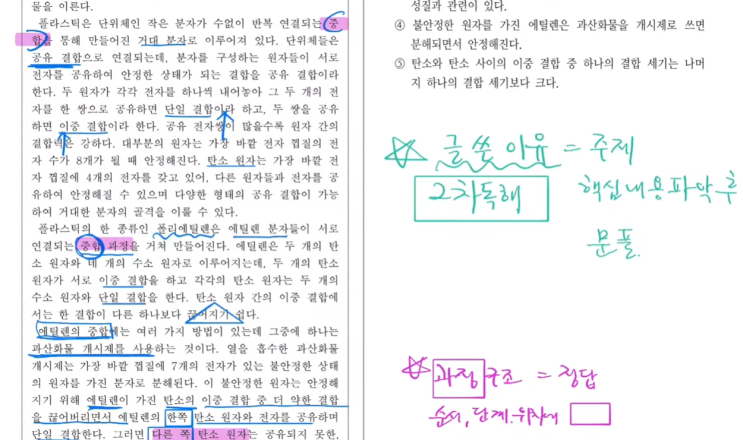 물을 이른다.
플라스틱은 단위체인 작은 분자가 수없이 반복 연결되는 중
합을 통해 만들어진 거대 분자로 이루어져 있다. 단위체들은
공유 결합으로 연결되는데, 분자를 구성하는 원자들이 서로
전자를 공유하여 안정한 상태가 되는 결합을 공유 결합이라
한다. 두 원자가 각각 전자를 하나씩 내어놓아 그 두 개의 전
자를 한 쌍으로 공유하면 단일 결합이라 하고, 두 쌍을 공유
하면 이중 결합이라 한다. 공유 전자쌍이 많을수록 원자 간의
결합력은 강하다. 대부분의 원자는 가장 바깥 전자 껍질의 전
자 수가 8개가 될 때 안정해진다. 탄소 원자는 가장 바깥 전
자 껍질에 4개의 전자를 갖고 있어, 다른 원자들과 전자를 공
유하여 안정해질 수 있으며 다양한 형태의 공유 결합이 가능
하여 거대한 분자의 골격을 이룰 수 있다.
플라스틱의 한 종류인 폴리에틸렌은 에틸렌 분자들이 서로
연결되는 중합 과정을 거쳐 만들어진다. 에틸렌은 두 개의 탄
소 원자와 네 개의 수소 원자로 이루어지는데, 두 개의 탄소
원자가 서로 이중 결합을 하고 각각의 탄소 원자는 두 개의
수소 원자와 단일 결합을 한다. 탄소 원자 간의 이중 결합에
서는 한 결합이 다른 하나보다 끊어지기 쉽다.
에틸렌의 중합에는 여러 가지 방법이 있는데 그중에 하나는
과산화물 개시제를 사용하는 것이다. 열을 흡수한 과산화물
개시제는 가장 바깥 껍질에 7개의 전자가 있는 불안정한 상태
의 원자를 가진 분자로 분해된다. 이 불안정한 원자는 안정해
지기 위해 에틸렌이 가진 탄소의 이중 결합 중 더 약한 결합
을 끊어버리면서 에틸렌의 한쪽 탄소 원자와 전자를 공유하며
단일 결합한다. 그러면 다른 쪽 탄소 원자는 공유되지 못한,
성질과 관련이 있다.
④ 불안정한 원자를 가진 에틸렌은 과산화물을 개시제로 쓰면
분해되면서 안정해진다.
⑤ 탄소와 탄소 사이의 이중 결합 중 하나의 결합 세기는 나머
지 하나의 결합 세기보다 크다.
글 쓴 이유 = 주제
2차독해 핵심내용파악 후
문풀.
과정 구조 = 정답
순서, 단계,